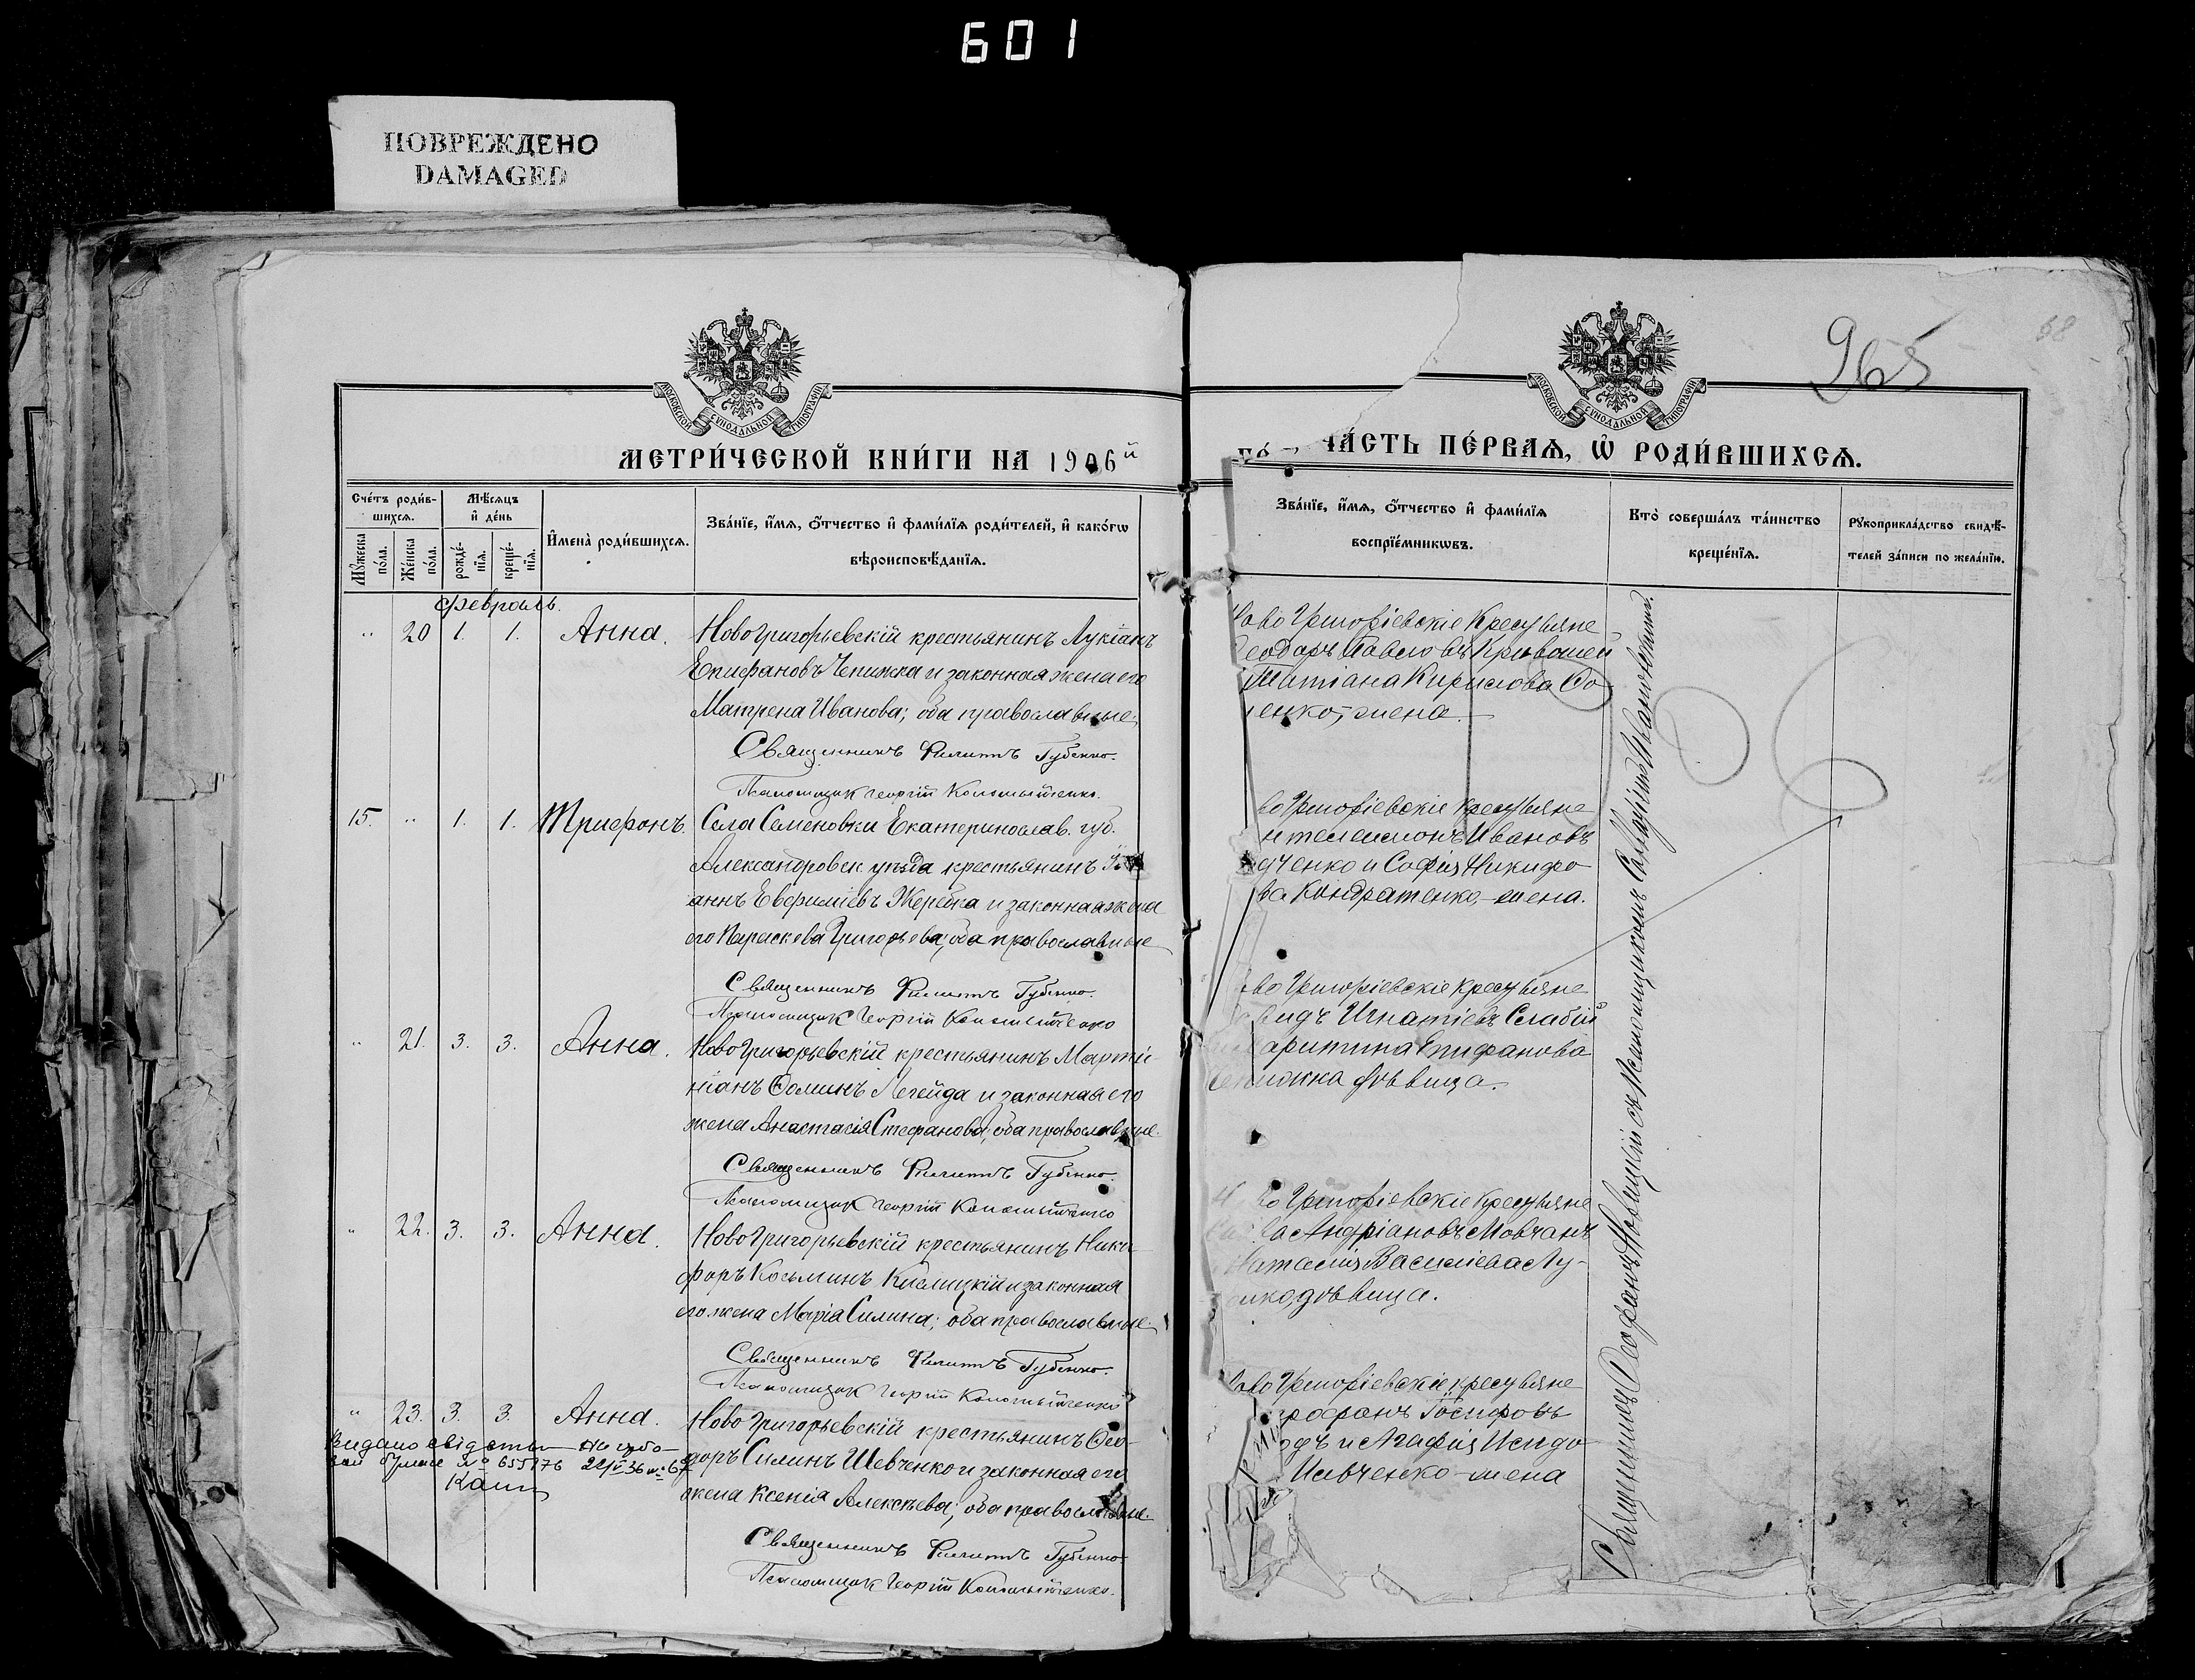 601
ПОВРЕЖДЕНО
DAMAGED
МОСКОВСКОЙ СУНОДАЛЬНОЙ ТИПОГРАФІИ
МЕТРИ́ЧЕСКОЙ КНИ́ГИ НА 1906й
Сче́тъ роди́в-
шихсѧ.
Мѣ́сѧцъ
и҆ де́нь
Мꙋ́жеска
по́ла.
Же́нска
по́ла.
рожде́-
нїѧ.
креще́-
нїѧ.
И҆мена̀ роди́вшихсѧ.
Зва́нїе, и҆́мѧ, ѻ҆́тчество и҆ фами́лїѧ роди́телей, и҆ како́гѡ
вѣроисповѣ́данїѧ.
Февраль.
" 20 1. 1. Анна.
Новогригорьевскій крестьянинъ Лукіанъ
Епифановъ Чепижка и законная жена его
Матрена Иванова; оба православные.
Священникъ Филиппъ Губенко.
Псаломщик Георгій Коломыйченко.
15. " 1. 1. Трифонъ.
Села Семеновки Екатеринослав. губ.
Александровск. уѣзда крестьянинъ Іо-
аннъ Евфиміевъ Жеребка и законная жена
его Параскева Григорьева; оба православные
Священникъ Филиппъ Губенко.
Псаломщик Георгій Коломыйченко
" 21. 3. 3. Анна.
Новогригорьевскій крестьянинъ Марти-
ніанъ Ѳоминъ Легейда и законная его
жена Анастасія Стефанова; оба православные.
Священникъ Филиппъ Губенко.
Псаломщик Георгій Коломыйченко
" 22. 3. 3. Анна.
Новогригорьевскій крестьянинъ Ники-
форъ Косьминъ Кислицкій и законная
его жена Марія Силина; оба православные.
Священникъ Филиппъ Губенко.
Псаломщик Георгій Коломыйченко
" 23. 3. 3. Анна.
Новогригорьевскій крестьянинъ Ѳео-
доръ Силинъ Шевченко и законная его
жена Ксенія Алексѣева; оба православные.
Священникъ Филиппъ Губенко
Псаломщик Георгій Коломыйченко.
Видано свідоцтв на гербо-
вой бумаге № 655176
965
68
МОСКОВСКОЙ СУНОДАЛЬНОЙ ТИПОГРАФІИ
ЧА́СТЬ ПЕ́РВАѦ, Ѡ҆ РОДИ́ВШИХСѦ.
Зва́нїе, и҆́мѧ, ѻ҆́тчество и҆ фами́лїѧ
воспрїе́мникѡвъ.
Кто̀ соверша́лъ та́инство
креще́нїѧ.
Рꙋкоприкла́дство свидѣ́-
телей за́писи по жела́нїю.
ово Григоріевскіе крестьяне
еодоръ Павловъ Кривошей
Татіана Кирилова Со
енко, жена.
во Григоріевскіе крестьяне
нтелеимонъ Ивановъ
дченко и Софія Никифо
ва Кондратенко, жена.
во Григоріевскіе крестьяне
видъ Игнатіевъ Слабій
аритина Епифанова
Чепижка дѣвица.
во Григоріевскіе крестьяне
Савва Андріановъ Мовчанъ
Наталія Васильева Лу-
енко, дѣвица.
ово Григоріевскіе крестьяне
трофанъ Іосифовъ
одъ и Агафія Исидо
Шевченко жена
Священникъ Ѳеофанъ Новицкій съ псаломщикомъ